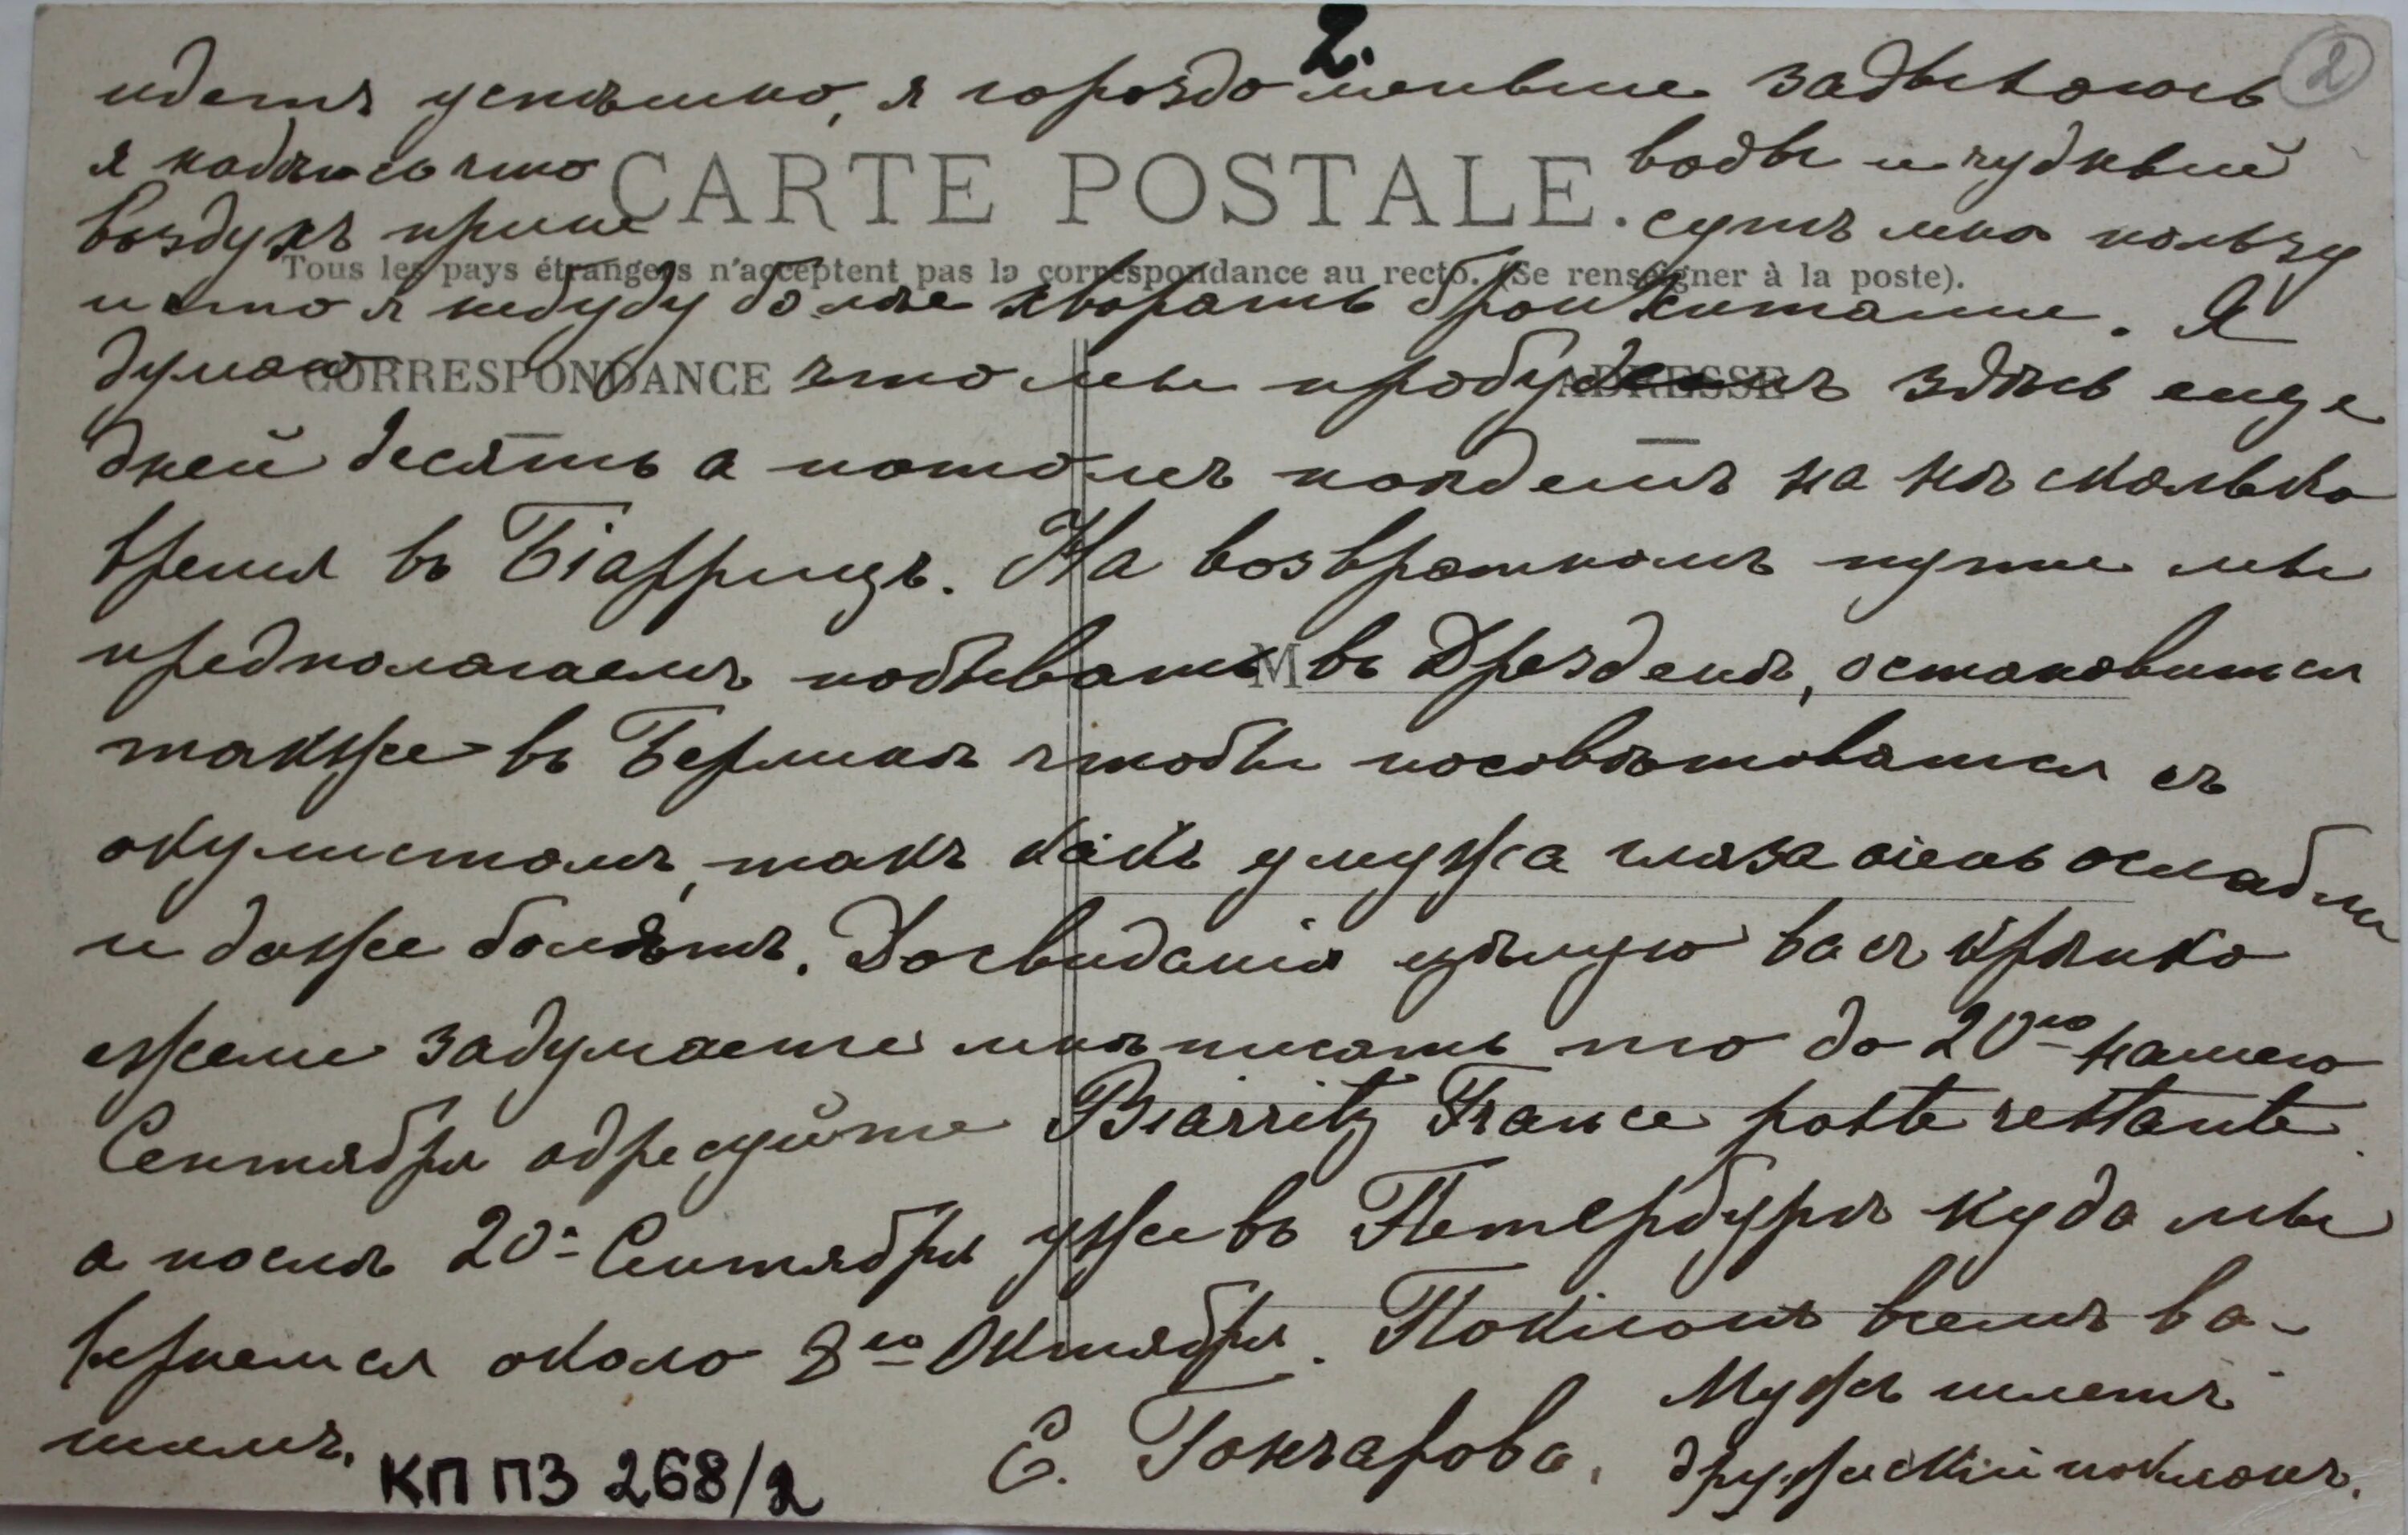 2.
2
идетъ успѣшно, я гораздо меньше задыхаюсь
CARTE POSTALE.
я надѣюсь что воды и чудный
воздухъ прине сутъ мнѣ пользу
Tous les pays étrangers n'acceptent pas la correspondance au recto. (Se renseigner à la poste).
и что я небуду болѣе хворать бронхитами. Я
CORRESPONDANCE
ADRESSE
думаю что мы пробудемъ здѣсь еще
дней десять а потомъ поѣдемъ на нѣсколько
время въ Біаррицъ. На возвратномъ пути мы
M
предполагаемъ побывать въ Дрезденѣ, остановится
также въ Берлинѣ чтобы посовѣтоватся съ
окулистомъ, такъ какъ у мужа глаза очень ослабли
и даже болятъ. Досвиданія цѣлую васъ крѣпко
ежели задумаете мнѣ писать то до 20го нашего
Сентября адресуйте Biarritz France poste restante
а послѣ 20- Сентября уже въ Петербургъ куда мы
вернемся около 8го Октября. Поклонъ всемъ ва-
шимъ.
Мужъ шлетъ
дружескій поклонъ.
Е. Гончарова.
КП ПЗ 268/2